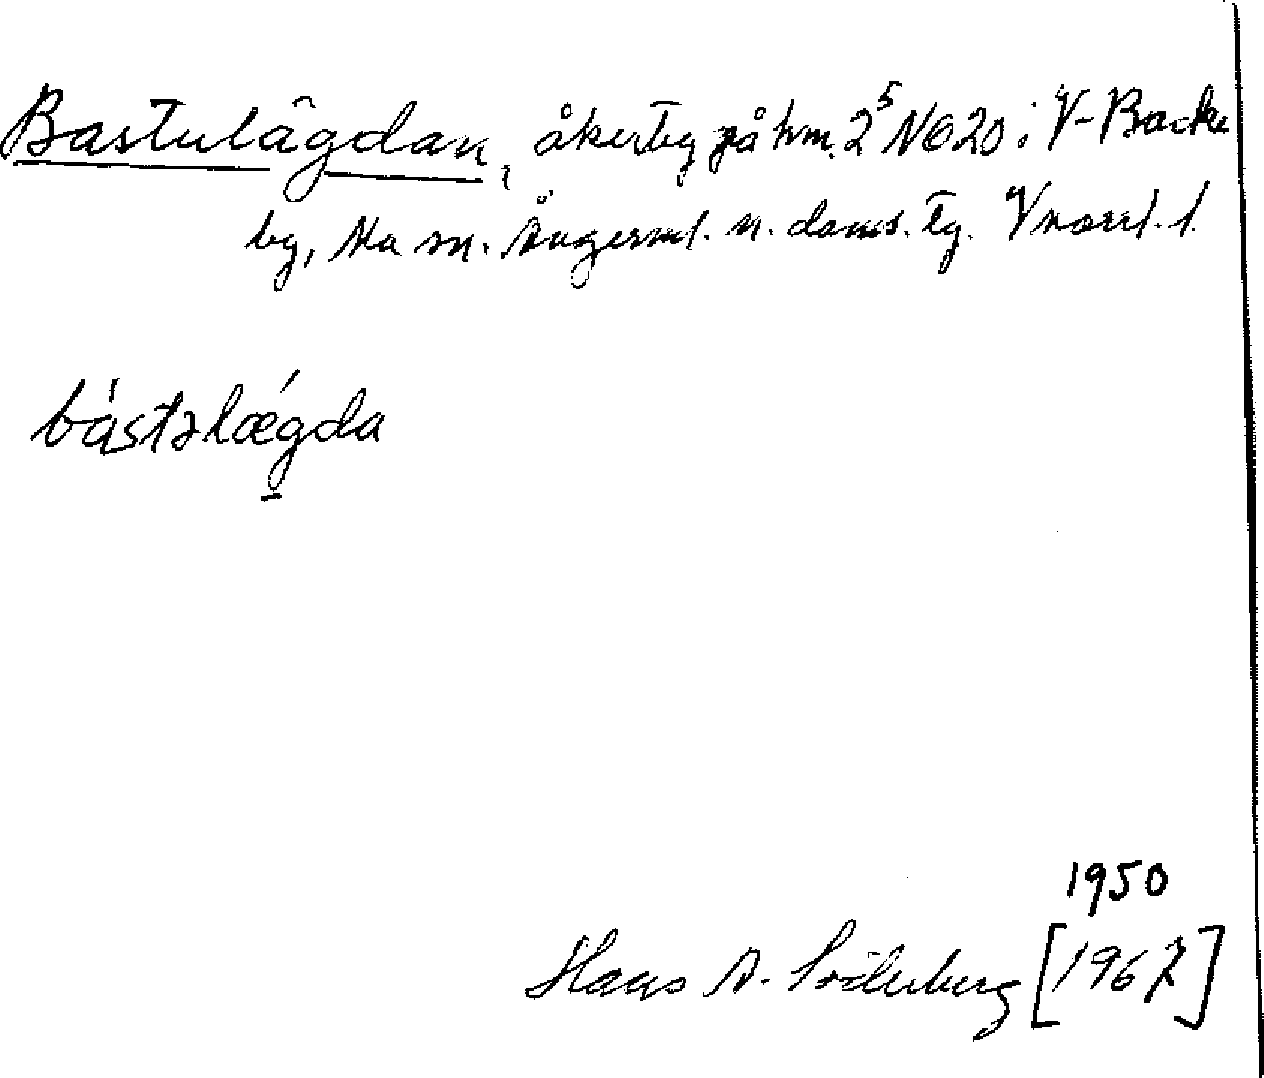 Bastulägdan, åkerteg på hm. 2⁵ NO20 i V-Backe
by, Ma sn. Ångerml. n. doms. tg. Vnorrl. l.
bástəlǽgda
1950
Hans A. Söderberg [1967]